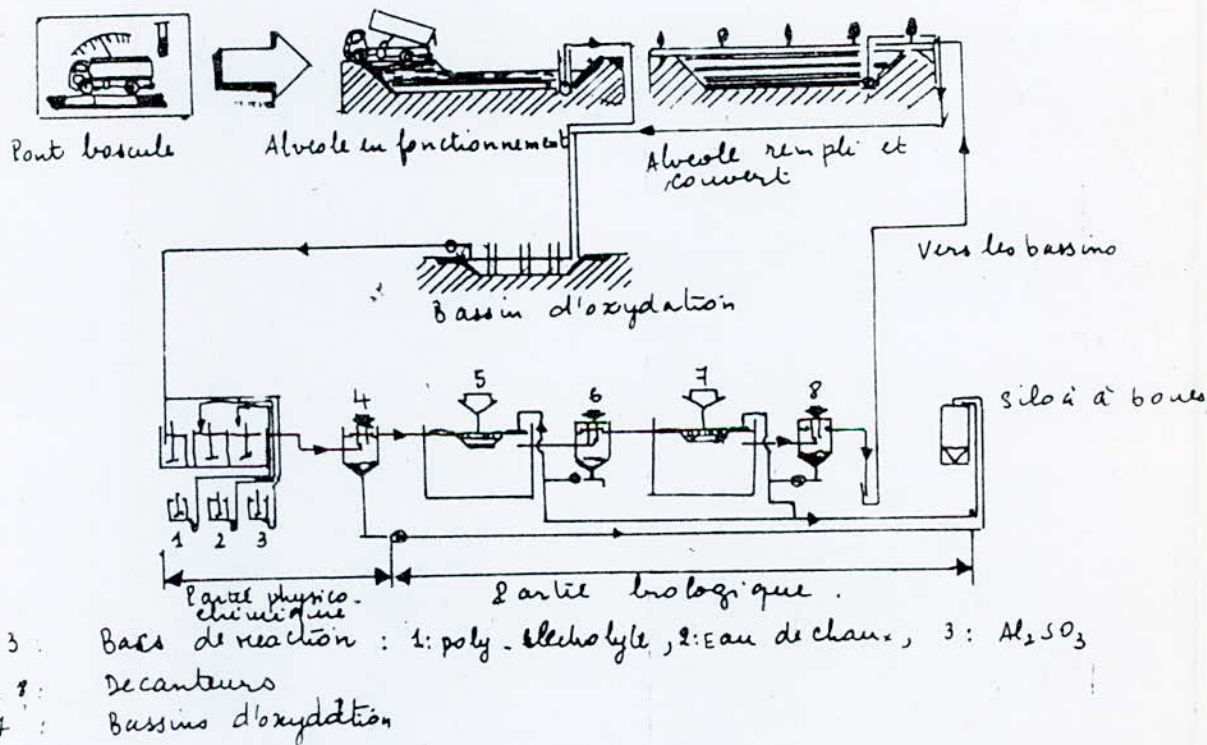 Pont bascule
Alvéole en fonctionnement
Alvéole rempli et
couvert
Vers les bassins
Bassin d'oxydation
4
5
6
7
8
Silo à à boues
1 2 3
Partie physico-
chimique
Partie biologique.
3 : Bacs de reaction : 1: poly-electrolyte, 2: Eau de chaux, 3: Al2SO3
8 : Decanteurs
7 : Bassins d'oxydation